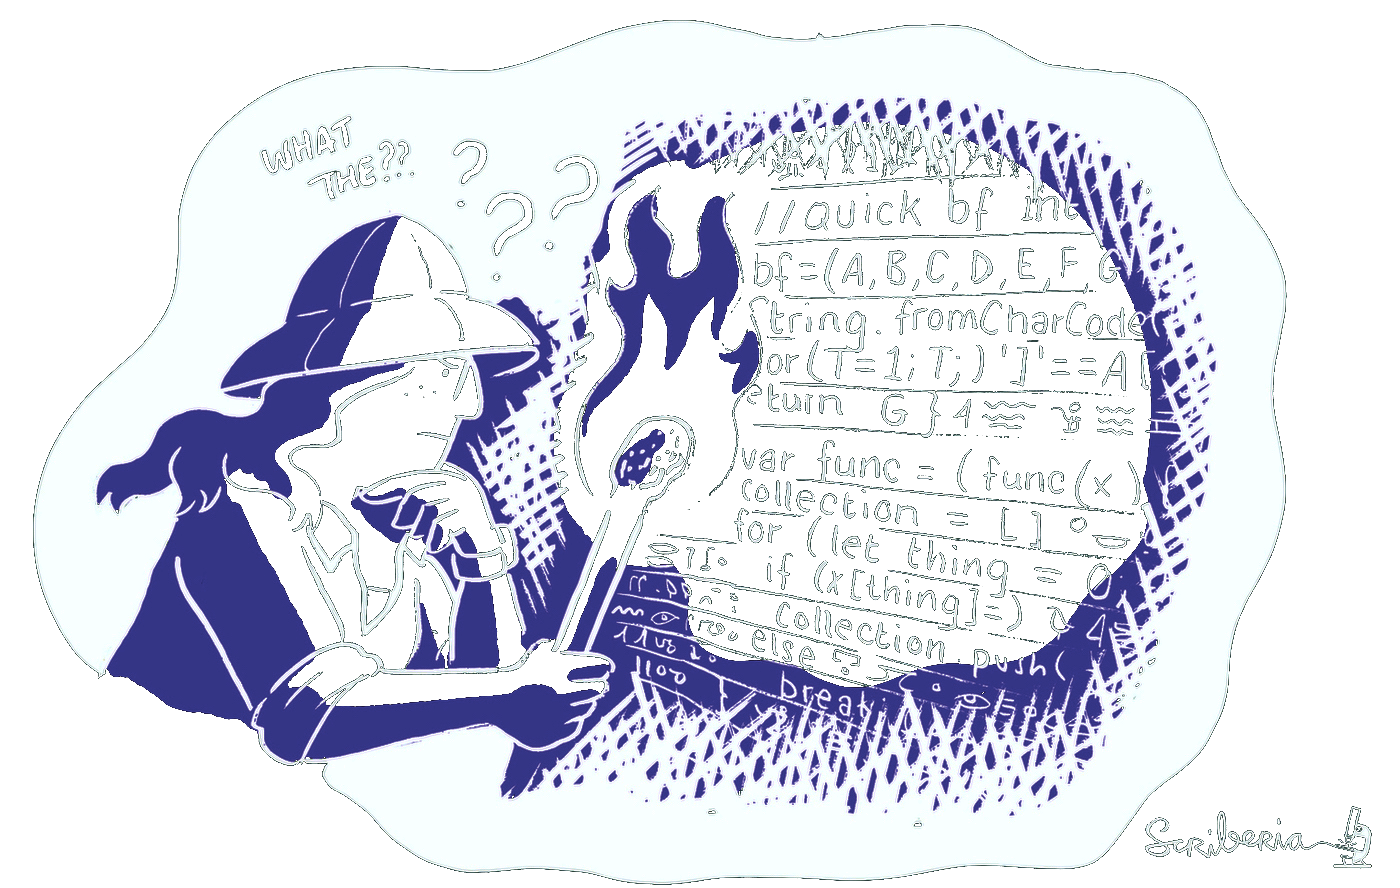 WHAT
THE??
? ? ?
//quick bf Int
bf=(A,B,C,D,E,F,G
String.fromCharCode(
or(T=1;T;)']'==A[
eturn G}4
var func = (func(x)
collection = []
for (let thing = 0
if (x[thing]=)
collection.push(
else
break
Scriberia